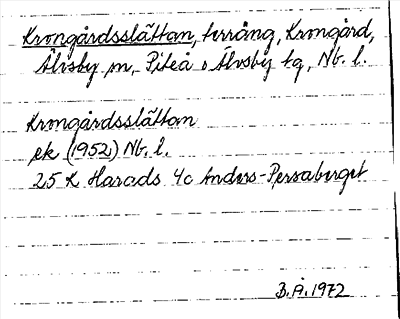 Krongårdsslättan, terräng, Krongård,
Älvsby sn, Piteå o Älvsby tg, Nb. l.
Krongårdsslättan
ek (1952) Nb. l.
25 K Harads 4c Anders-Persaberget
B.Å. 1972